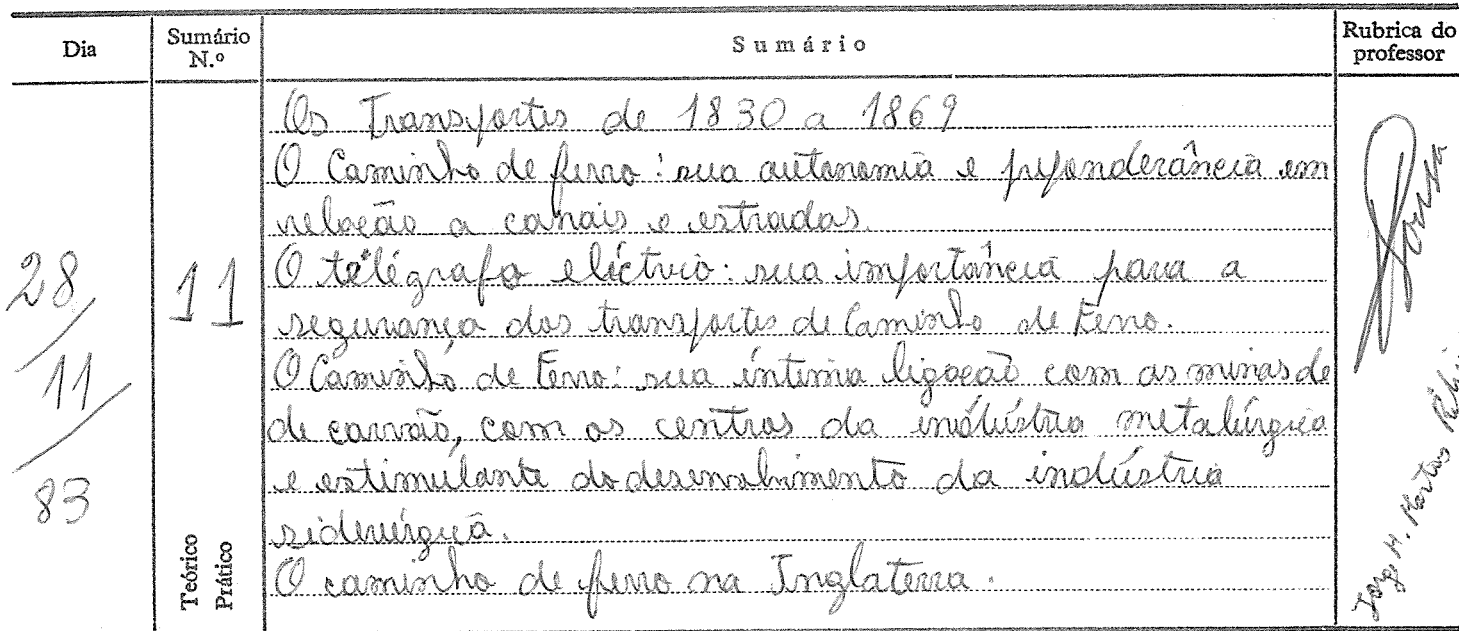 Dia
Sumário N.º
Sumário
Rubrica do professor
28/11/83
11
Teórico
Prático
Os Transportes de 1830 a 1869
O Caminho de ferro: sua autonomia e preponderância em
relação a canais e estradas.
O telégrafo eléctrico: sua importância para a
segurança dos transportes de Caminho de Ferro.
O Caminho de Ferro: sua íntima ligação com as minas de
de carvão, com os centros da indústria metalúrgica
e estimulante do desenvolvimento da indústria
siderúrgica.
O caminho de ferro na Inglaterra.
Jorge M. Martins